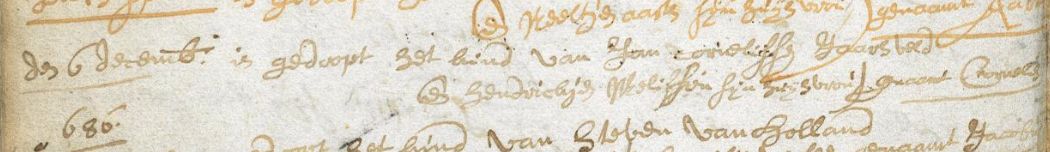 en Neeltje sijn huijsvrou genaamt
den 6 decemb: is gedoopt het kind van Jan Cornelissen Jaarsveld
en Hendrickje Melissen sijn huijsvrou genaemt Cornelis
686.
het kind van Steven van Holland
genaamt Jacob